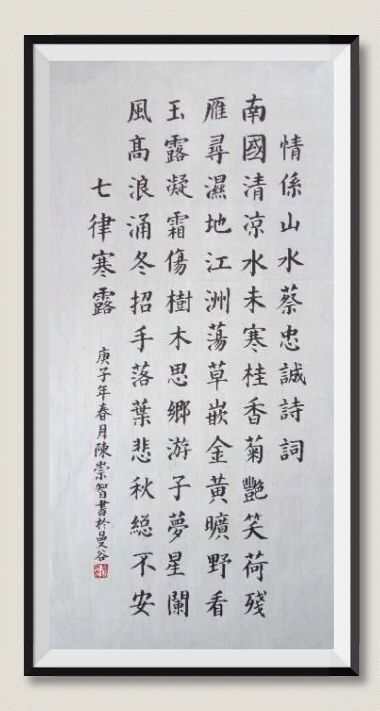 情係山水蔡忠誠詩詞
南國清涼水未寒桂香菊豔笑荷殘
雁尋濕地江洲蕩草嵌金黃曠野看
玉露凝霜傷樹木思鄉游子夢星闌
風髙浪涌冬招手落葉悲秋緫不安
七律寒露
庚子年春月陳崇智書於曼谷